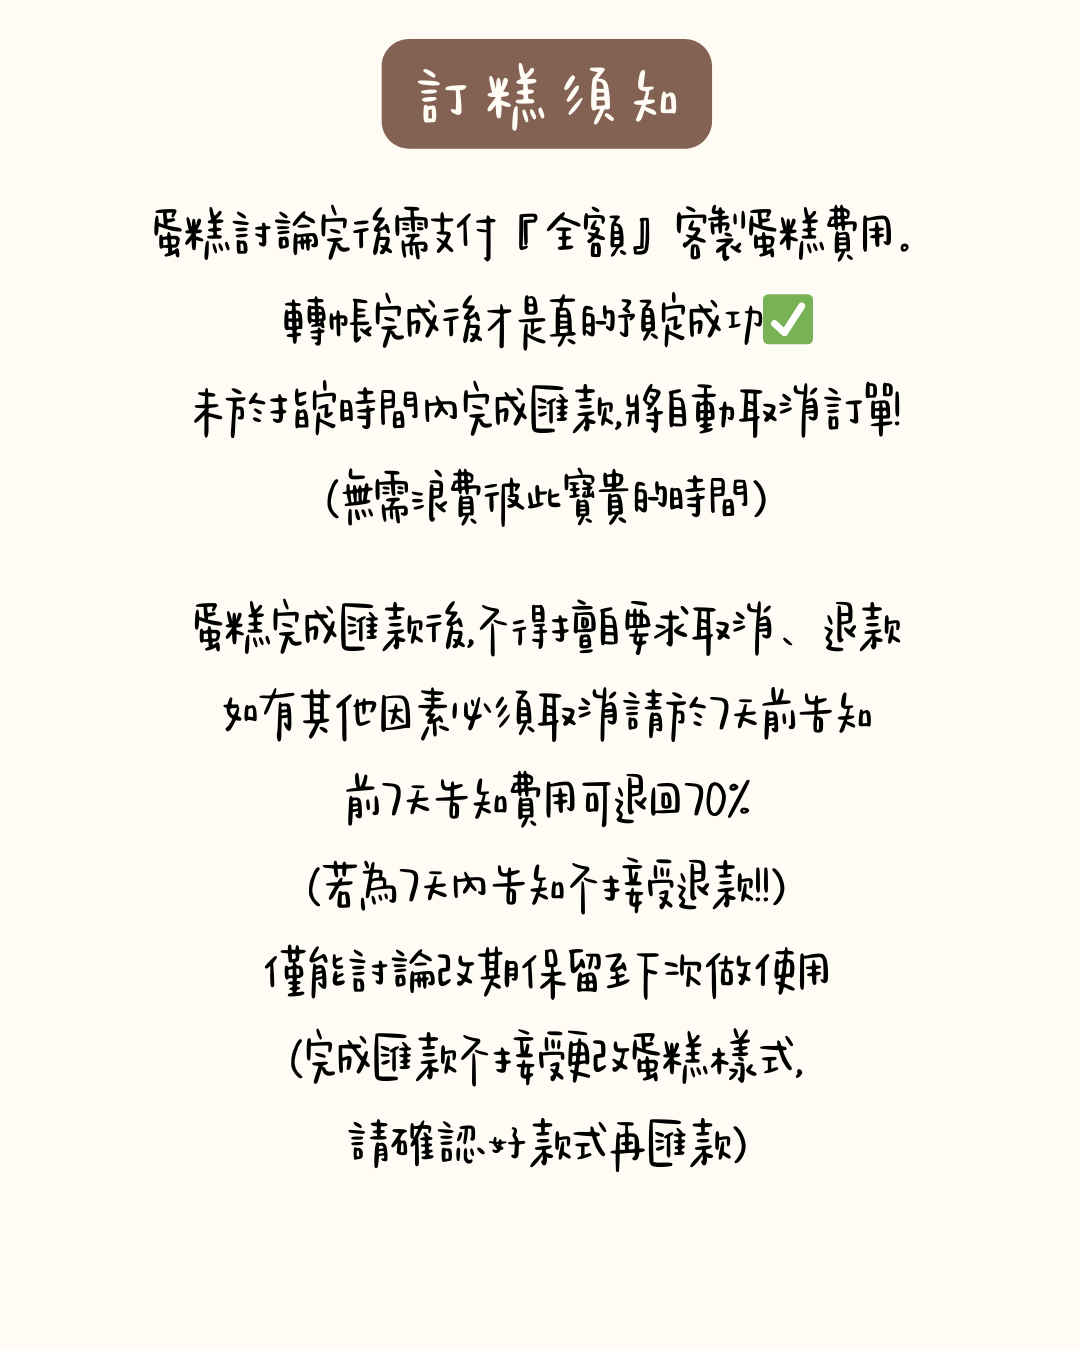 訂糕須知
蛋糕討論完後需支付『全額』客製蛋糕費用。
轉帳完成後才是真的預定成功✅
未於指定時間內完成匯款,將自動取消訂單!
(無需浪費彼此寶貴的時間)
蛋糕完成匯款後,不得擅自要求取消、退款
如有其他因素必須取消請於7天前告知
前7天告知費用可退回70%
(若為7天內告知不接受退款!!)
僅能討論改期保留至下次做使用
(完成匯款不接受更改蛋糕樣式,
請確認好款式再匯款)